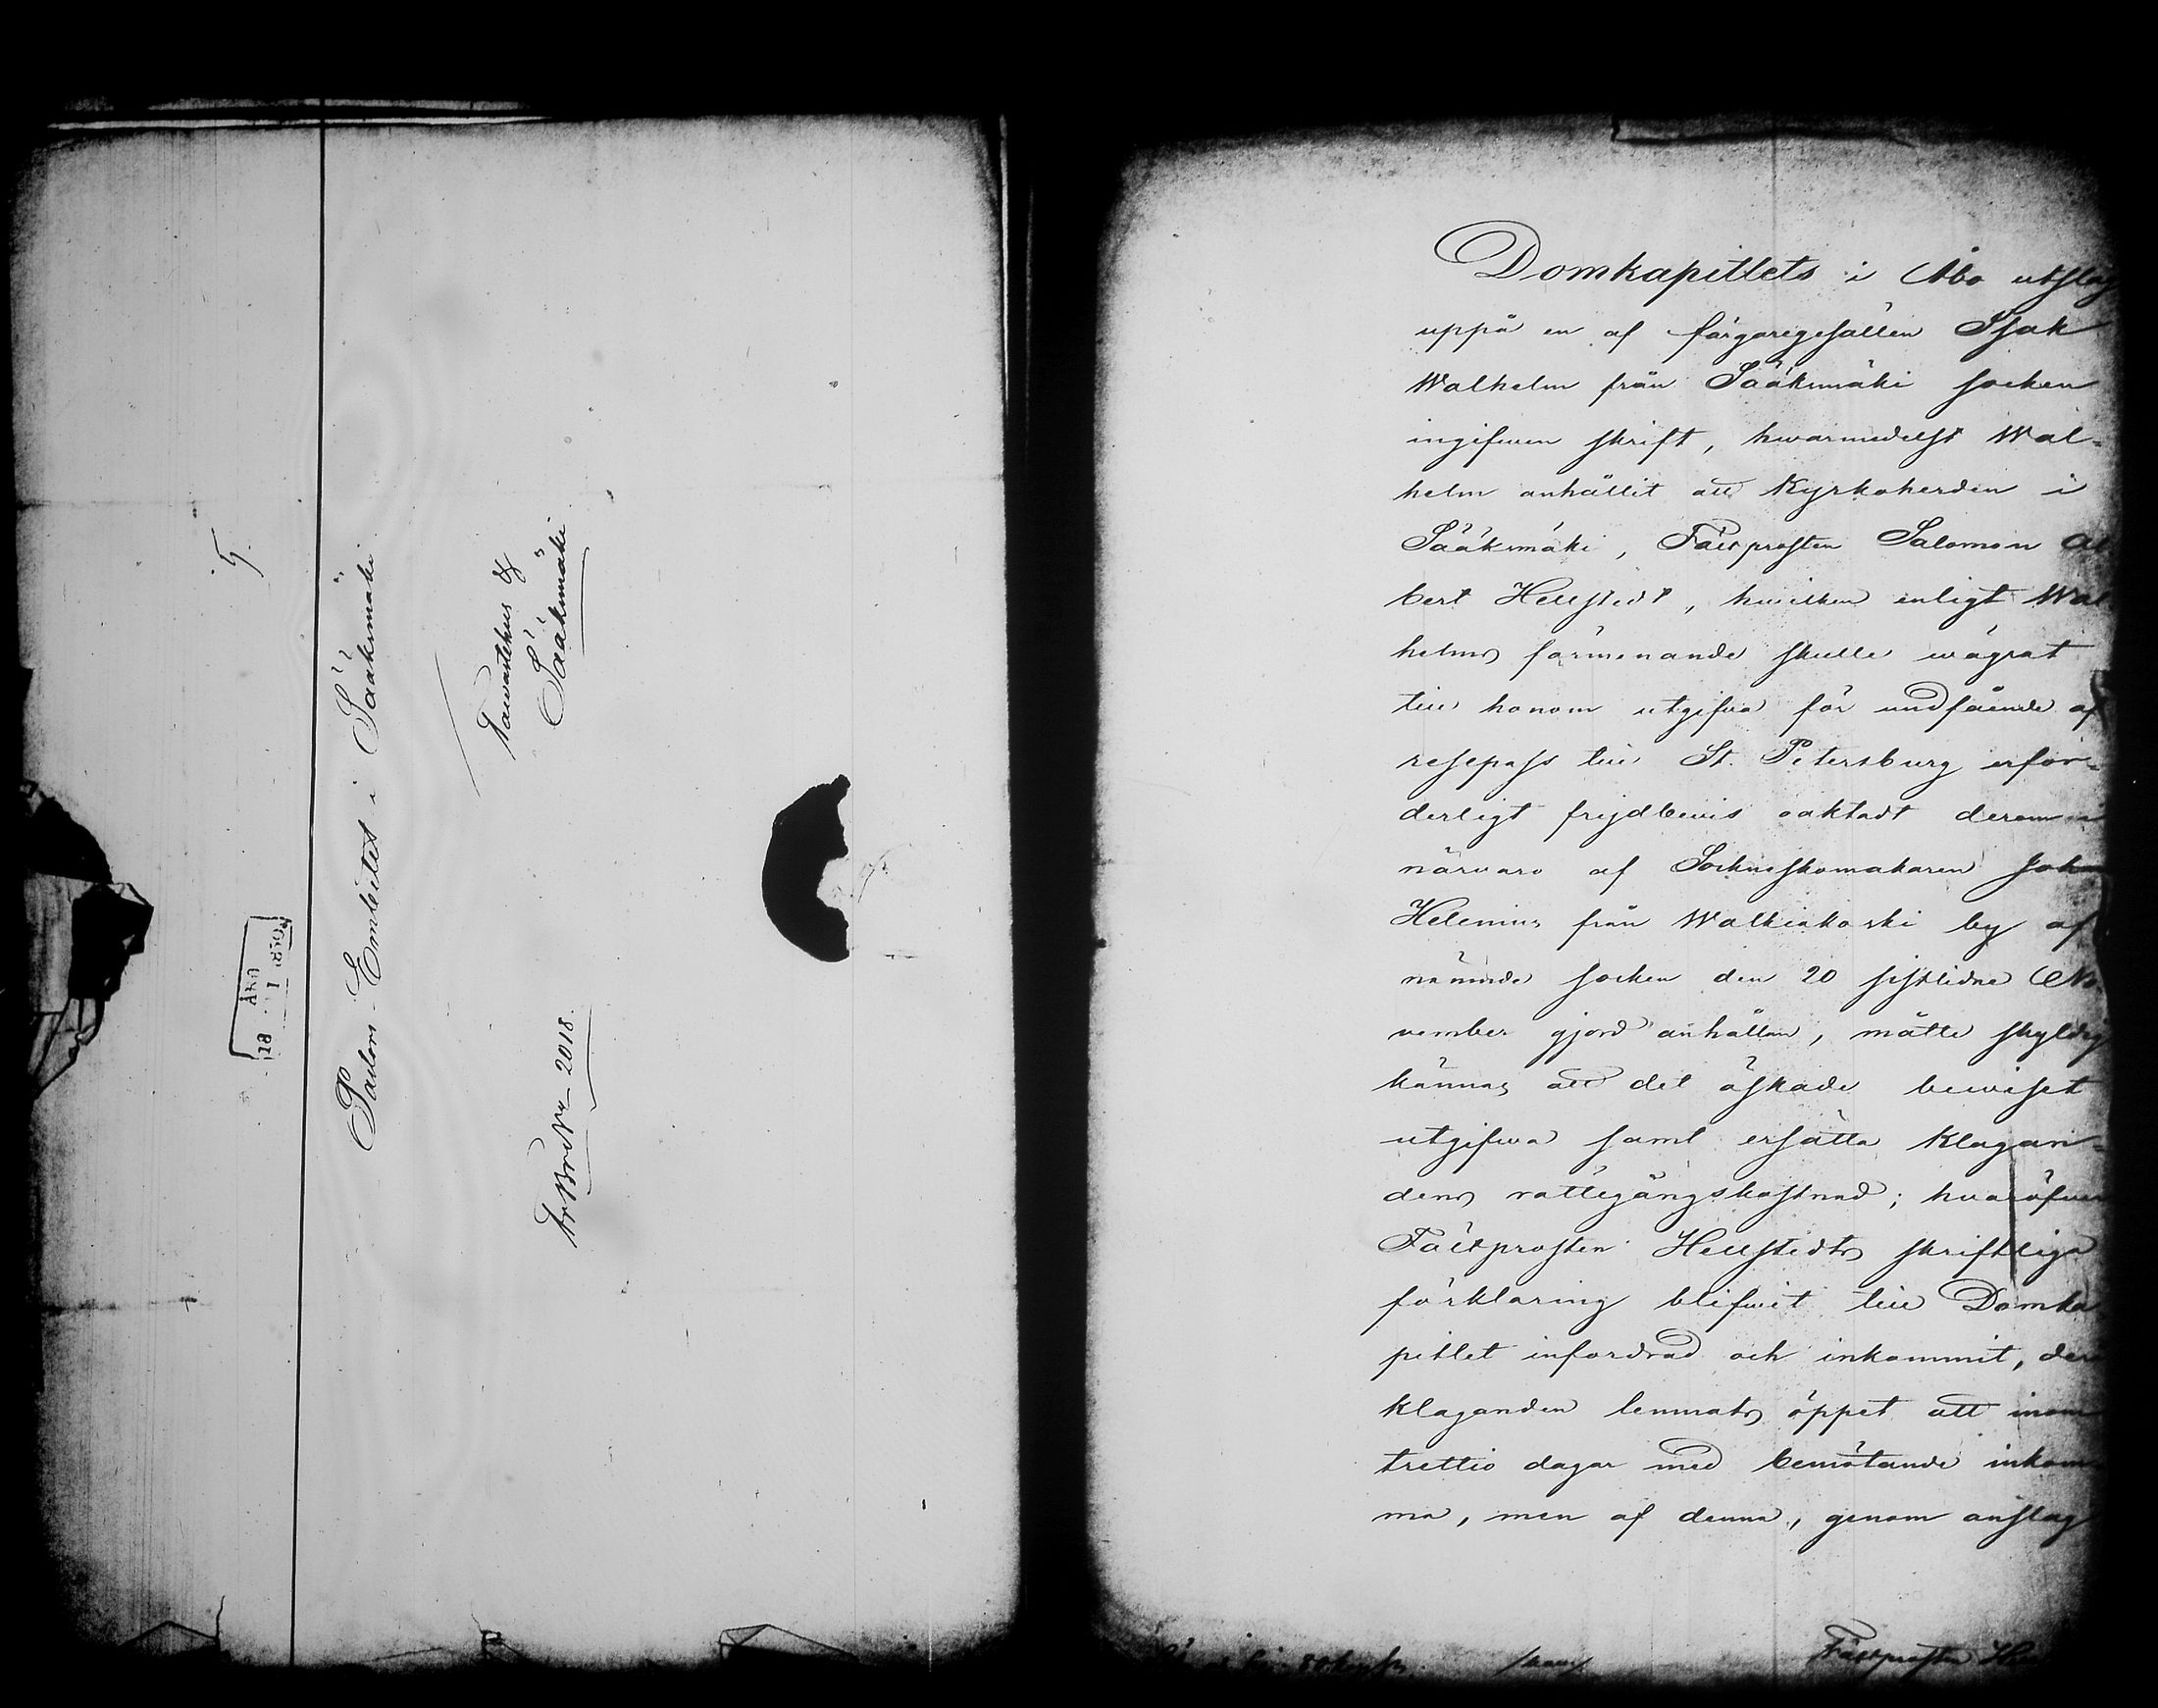 5.
ÅBO
18 1 1859
Pastors-Embetet i Sääksmäki
Tavastehus &
Sääksmäki
Fr Bref No 2018.
Domkapitlets i Åbo utslag
uppå en af färgaregesällen Isak
Walhelm från Sääksmäki socken
ingifwen skrift, hwarmedelst Wal-
helm anhållit att Kyrkoherden i
Sääksmäki, Fältprosten Salomon Al
bert Hellstedt, hwilken enligt Wal
helms förmenande skulle wägrat
till honom utgifwa för undfående af
resepass till St. Petersburg erfor-
derligt frejdbevis oaktadt derom i
närvaro af Sockneskomakaren Joh
Helenius från Walkiakoski by af
nämnde socken den 20 sistlidne No
vember gjord anhållan, måtte skyldig
kännas att det äskade bewiset
utgifwa samt ersätta Klagan-
dens rättegångskostnad; hvaröfver
Fältprosten Hellstedts skriftliga
förklaring blifwit till Domka
pitlet infordrad och inkommit, der
Klaganden lemnats öppet att inom
trettio dagar med bemötande inkom
ma, men af denna, genom anslag
Fältprosten